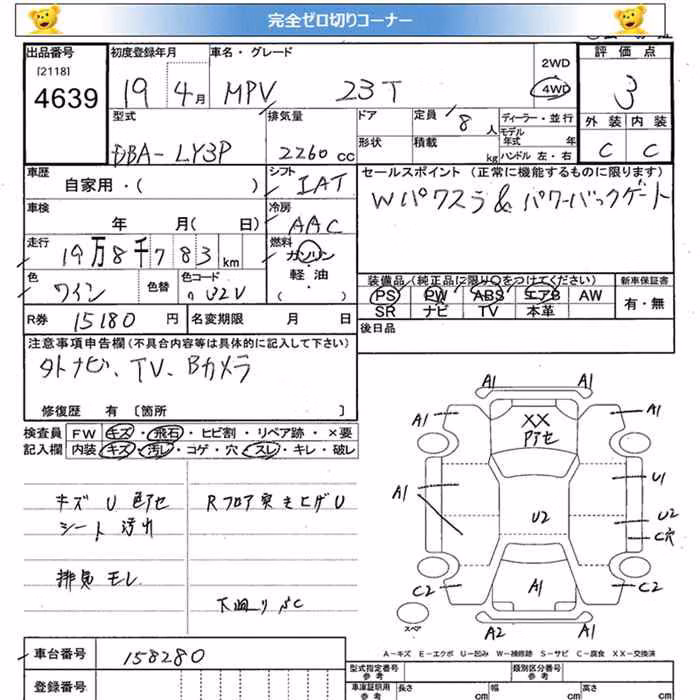 完全ゼロ切りコーナー
出品番号 初度登録年月 車名・グレード 評価点
[2118] 4639 19年 4月 MPV 23T 2WD 4WD 3
型式 排気量 ドア 定員 8人 ディーラー・並行 外装 内装
DBA-LY3P 2260cc 形状 積載 kg モデル年式 年 ハンドル 左・右 C C
車歴 自家用・( ) シフト IAT セールスポイント (正常に機能するものに限ります)
車検 年 月( 日) 冷房 AAC Wパワスラ&パワーバックゲート
走行 19万8千783km 燃料 ガソリン
軽・油
( ・ )
色 ワイン 色替 色コード 32V 装備品(純正品に限り○をつけてください) 新車保証書
PS PW ABS エアB AW 有・無
SR ナビ TV 本革
R券 15180円 名変期限 月 日 後日品
注意事項申告欄(不具合内容等は具体的に記入して下さい)
外ナビ、TV、Bカメラ
修復歴 有〔箇所 〕
検査員 FW キズ・飛石・ヒビ割・リペア跡・×要
記入欄 内装 キズ・汚レ・コゲ・穴・スレ・キレ・破レ
キズ U 色アセ Rフロア突き上げU
シート汚れ
排気モレ
下廻りSC
A1 A1
A1 A1
XX
アセ
A1 U1
U2 U2
C穴
C2 A1 C2
スペア
A2 A1
A-キズ E-エクボ U-凹み W-補修跡 S-サビ C-腐食 XX-交換済
車台番号 158280 型式指定番号 参考 類別区分番号 参考
登録番号 車庫証明用 参考 長さ cm 幅 cm 高さ cm